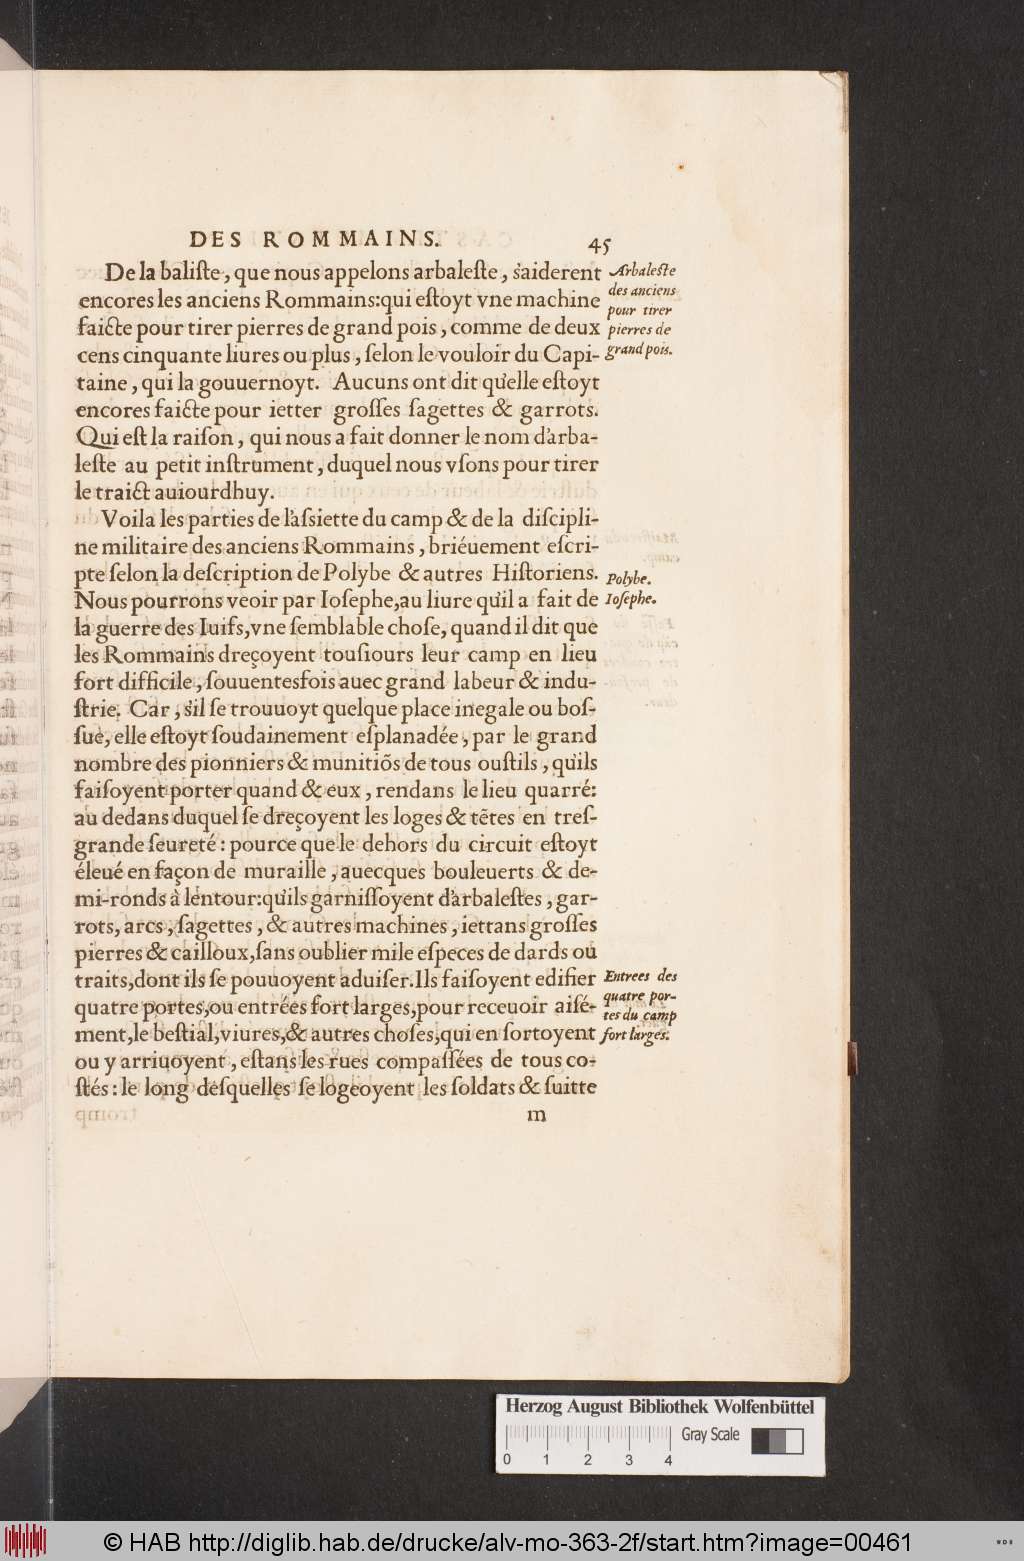 DES ROMMAINS. 45
De la baliſte, que nous appelons arbaleſte, s'aiderent
encores les anciens Rommains: qui eſtoyt vne machine
faicte pour tirer pierres de grand pois, comme de deux
cens cinquante liures ou plus, ſelon le vouloir du Capi-
taine, qui la gouuernoyt. Aucuns ont dit qu'elle eſtoyt
encores faicte pour ietter groſſes ſagettes & garrots.
Qui eſt la raiſon, qui nous a fait donner le nom d'arba-
leſte au petit inſtrument, duquel nous vſons pour tirer
le traict auiourdhuy.
Arbaleſte
des anciens
pour tirer
pierres de
grand pois.
Voila les parties de l'aſsiette du camp & de la diſcipli-
ne militaire des anciens Rommains, briéuement eſcri-
pte ſelon la deſcription de Polybe & autres Hiſtoriens.
Nous pourrons veoir par Ioſephe, au liure qu'il a fait de
la guerre des Iuifs, vne ſemblable choſe, quand il dit que
les Rommains dreçoyent touſiours leur camp en lieu
fort difficile, ſouuentesfois auec grand labeur & indu-
ſtrie. Car, s'il ſe trouuoyt quelque place inegale ou boſ-
ſue, elle eſtoyt ſoudainement eſplanadée, par le grand
nombre des pionniers & munitiõs de tous ouſtils, qu'ils
faiſoyent porter quand & eux, rendans le lieu quarré:
au dedans duquel ſe dreçoyent les loges & tẽtes en treſ-
grande ſeureté: pource que le dehors du circuit eſtoyt
éleué en façon de muraille, auecques bouleuerts & de-
mi-ronds à l'entour: qu'ils garniſſoyent d'arbaleſtes, gar-
rots, arcs, ſagettes, & autres machines, iettans groſſes
pierres & cailloux, ſans oublier mile eſpeces de dards ou
traits, dont ils ſe pouuoyent aduiſer. Ils faiſoyent edifier
quatre portes, ou entrées fort larges, pour receuoir aiſé-
ment, le beſtial, viures, & autres choſes, qui en ſortoyent
ou y arriuoyent, eſtans les rues compaſſées de tous co-
ſtés: le long deſquelles ſe logeoyent les ſoldats & ſuitte
Polybe.
Ioſephe.
Entrees des
quatre por-
tes du camp
fort larges.
m
Herzog August Bibliothek Wolfenbüttel
Gray Scale
0 1 2 3 4
© HAB http://diglib.hab.de/drucke/alv-mo-363-2f/start.htm?image=00461